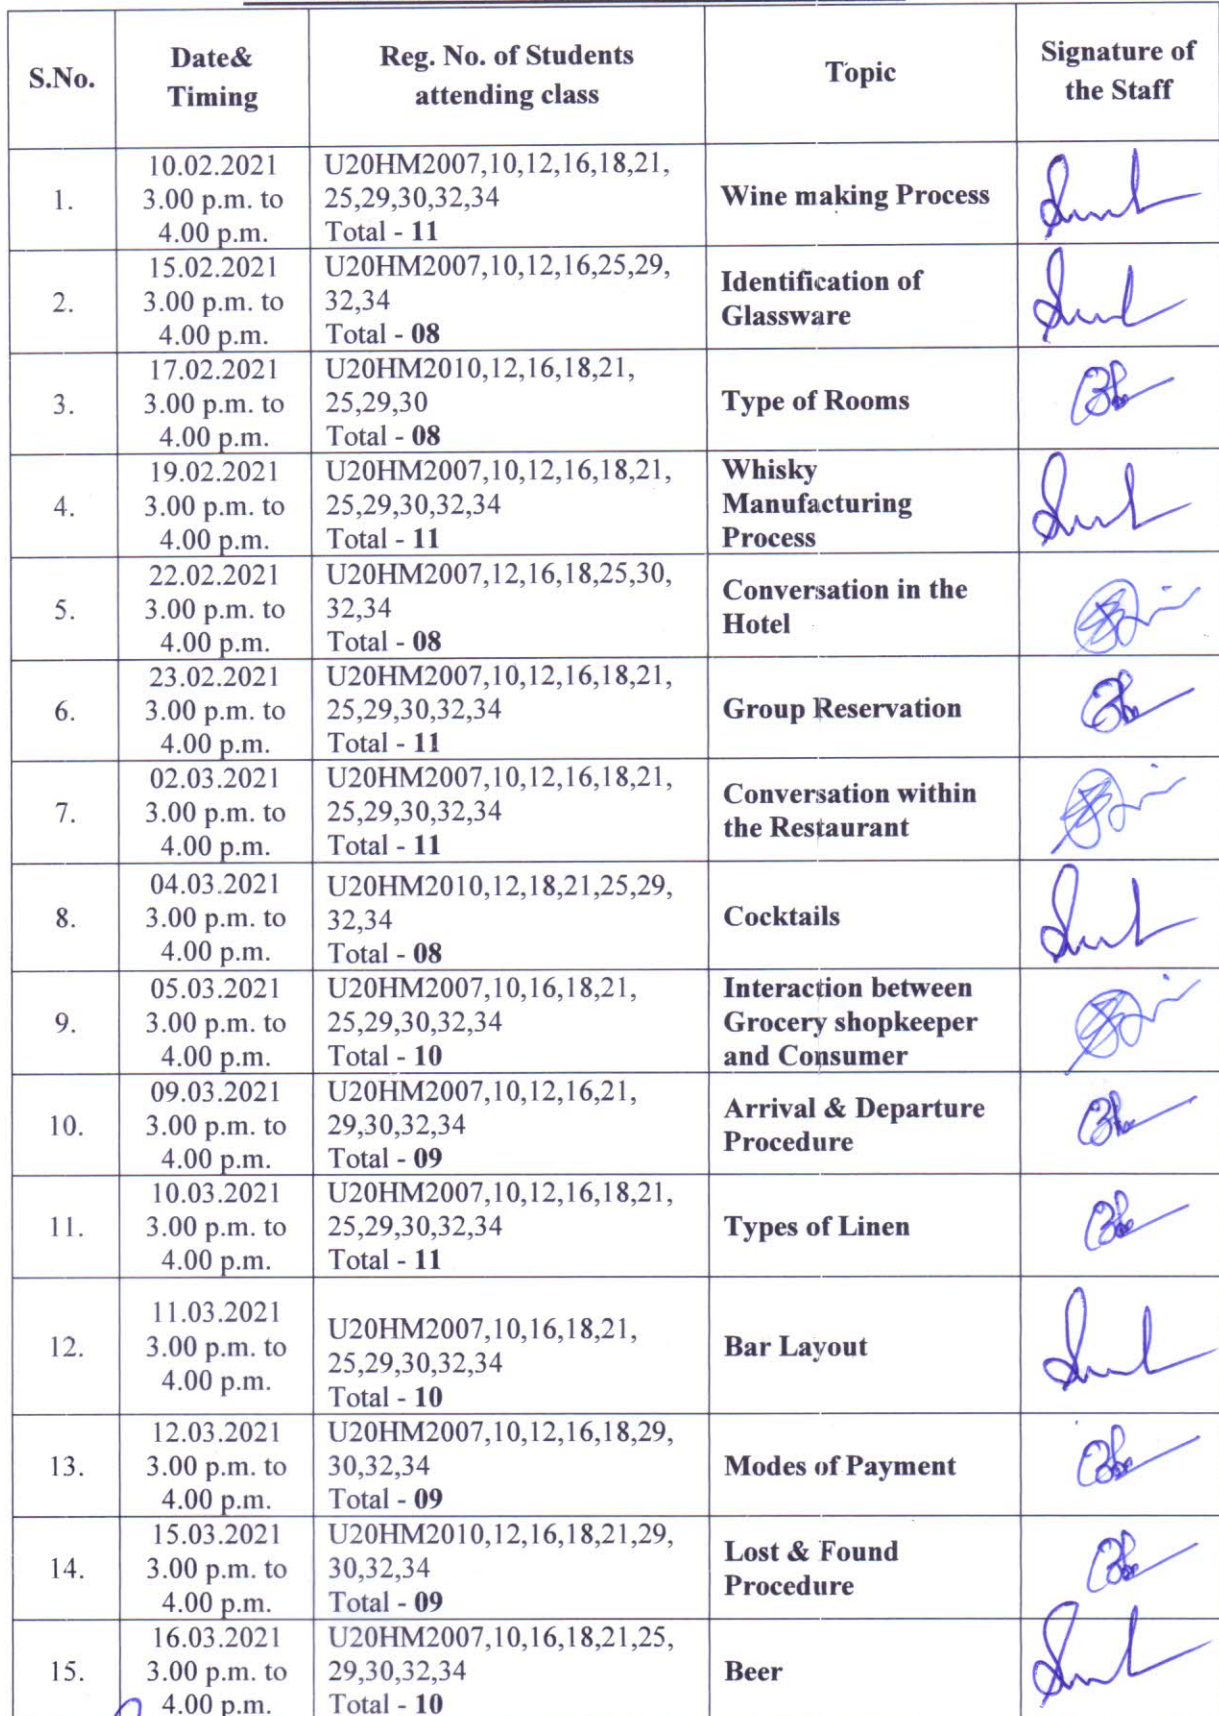 S.No.
Date&
Timing
Reg. No. of Students
attending class
Topic
Signature of
the Staff
1.
10.02.2021
3.00 p.m. to
4.00 p.m.
U20HM2007,10,12,16,18,21,
25,29,30,32,34
Total - 11
Wine making Process
2.
15.02.2021
3.00 p.m. to
4.00 p.m.
U20HM2007,10,12,16,25,29,
32,34
Total - 08
Identification of
Glassware
3.
17.02.2021
3.00 p.m. to
4.00 p.m.
U20HM2010,12,16,18,21,
25,29,30
Total - 08
Type of Rooms
4.
19.02.2021
3.00 p.m. to
4.00 p.m.
U20HM2007,10,12,16,18,21,
25,29,30,32,34
Total - 11
Whisky
Manufacturing
Process
5.
22.02.2021
3.00 p.m. to
4.00 p.m.
U20HM2007,12,16,18,25,30,
32,34
Total - 08
Conversation in the
Hotel
6.
23.02.2021
3.00 p.m. to
4.00 p.m.
U20HM2007,10,12,16,18,21,
25,29,30,32,34
Total - 11
Group Reservation
7.
02.03.2021
3.00 p.m. to
4.00 p.m.
U20HM2007,10,12,16,18,21,
25,29,30,32,34
Total - 11
Conversation within
the Restaurant
8.
04.03.2021
3.00 p.m. to
4.00 p.m.
U20HM2010,12,18,21,25,29,
32,34
Total - 08
Cocktails
9.
05.03.2021
3.00 p.m. to
4.00 p.m.
U20HM2007,10,16,18,21,
25,29,30,32,34
Total - 10
Interaction between
Grocery shopkeeper
and Consumer
10.
09.03.2021
3.00 p.m. to
4.00 p.m.
U20HM2007,10,12,16,21,
29,30,32,34
Total - 09
Arrival & Departure
Procedure
11.
10.03.2021
3.00 p.m. to
4.00 p.m.
U20HM2007,10,12,16,18,21,
25,29,30,32,34
Total - 11
Types of Linen
12.
11.03.2021
3.00 p.m. to
4.00 p.m.
U20HM2007,10,16,18,21,
25,29,30,32,34
Total - 10
Bar Layout
13.
12.03.2021
3.00 p.m. to
4.00 p.m.
U20HM2007,10,12,16,18,29,
30,32,34
Total - 09
Modes of Payment
14.
15.03.2021
3.00 p.m. to
4.00 p.m.
U20HM2010,12,16,18,21,29,
30,32,34
Total - 09
Lost & Found
Procedure
15.
16.03.2021
3.00 p.m. to
4.00 p.m.
U20HM2007,10,16,18,21,25,
29,30,32,34
Total - 10
Beer